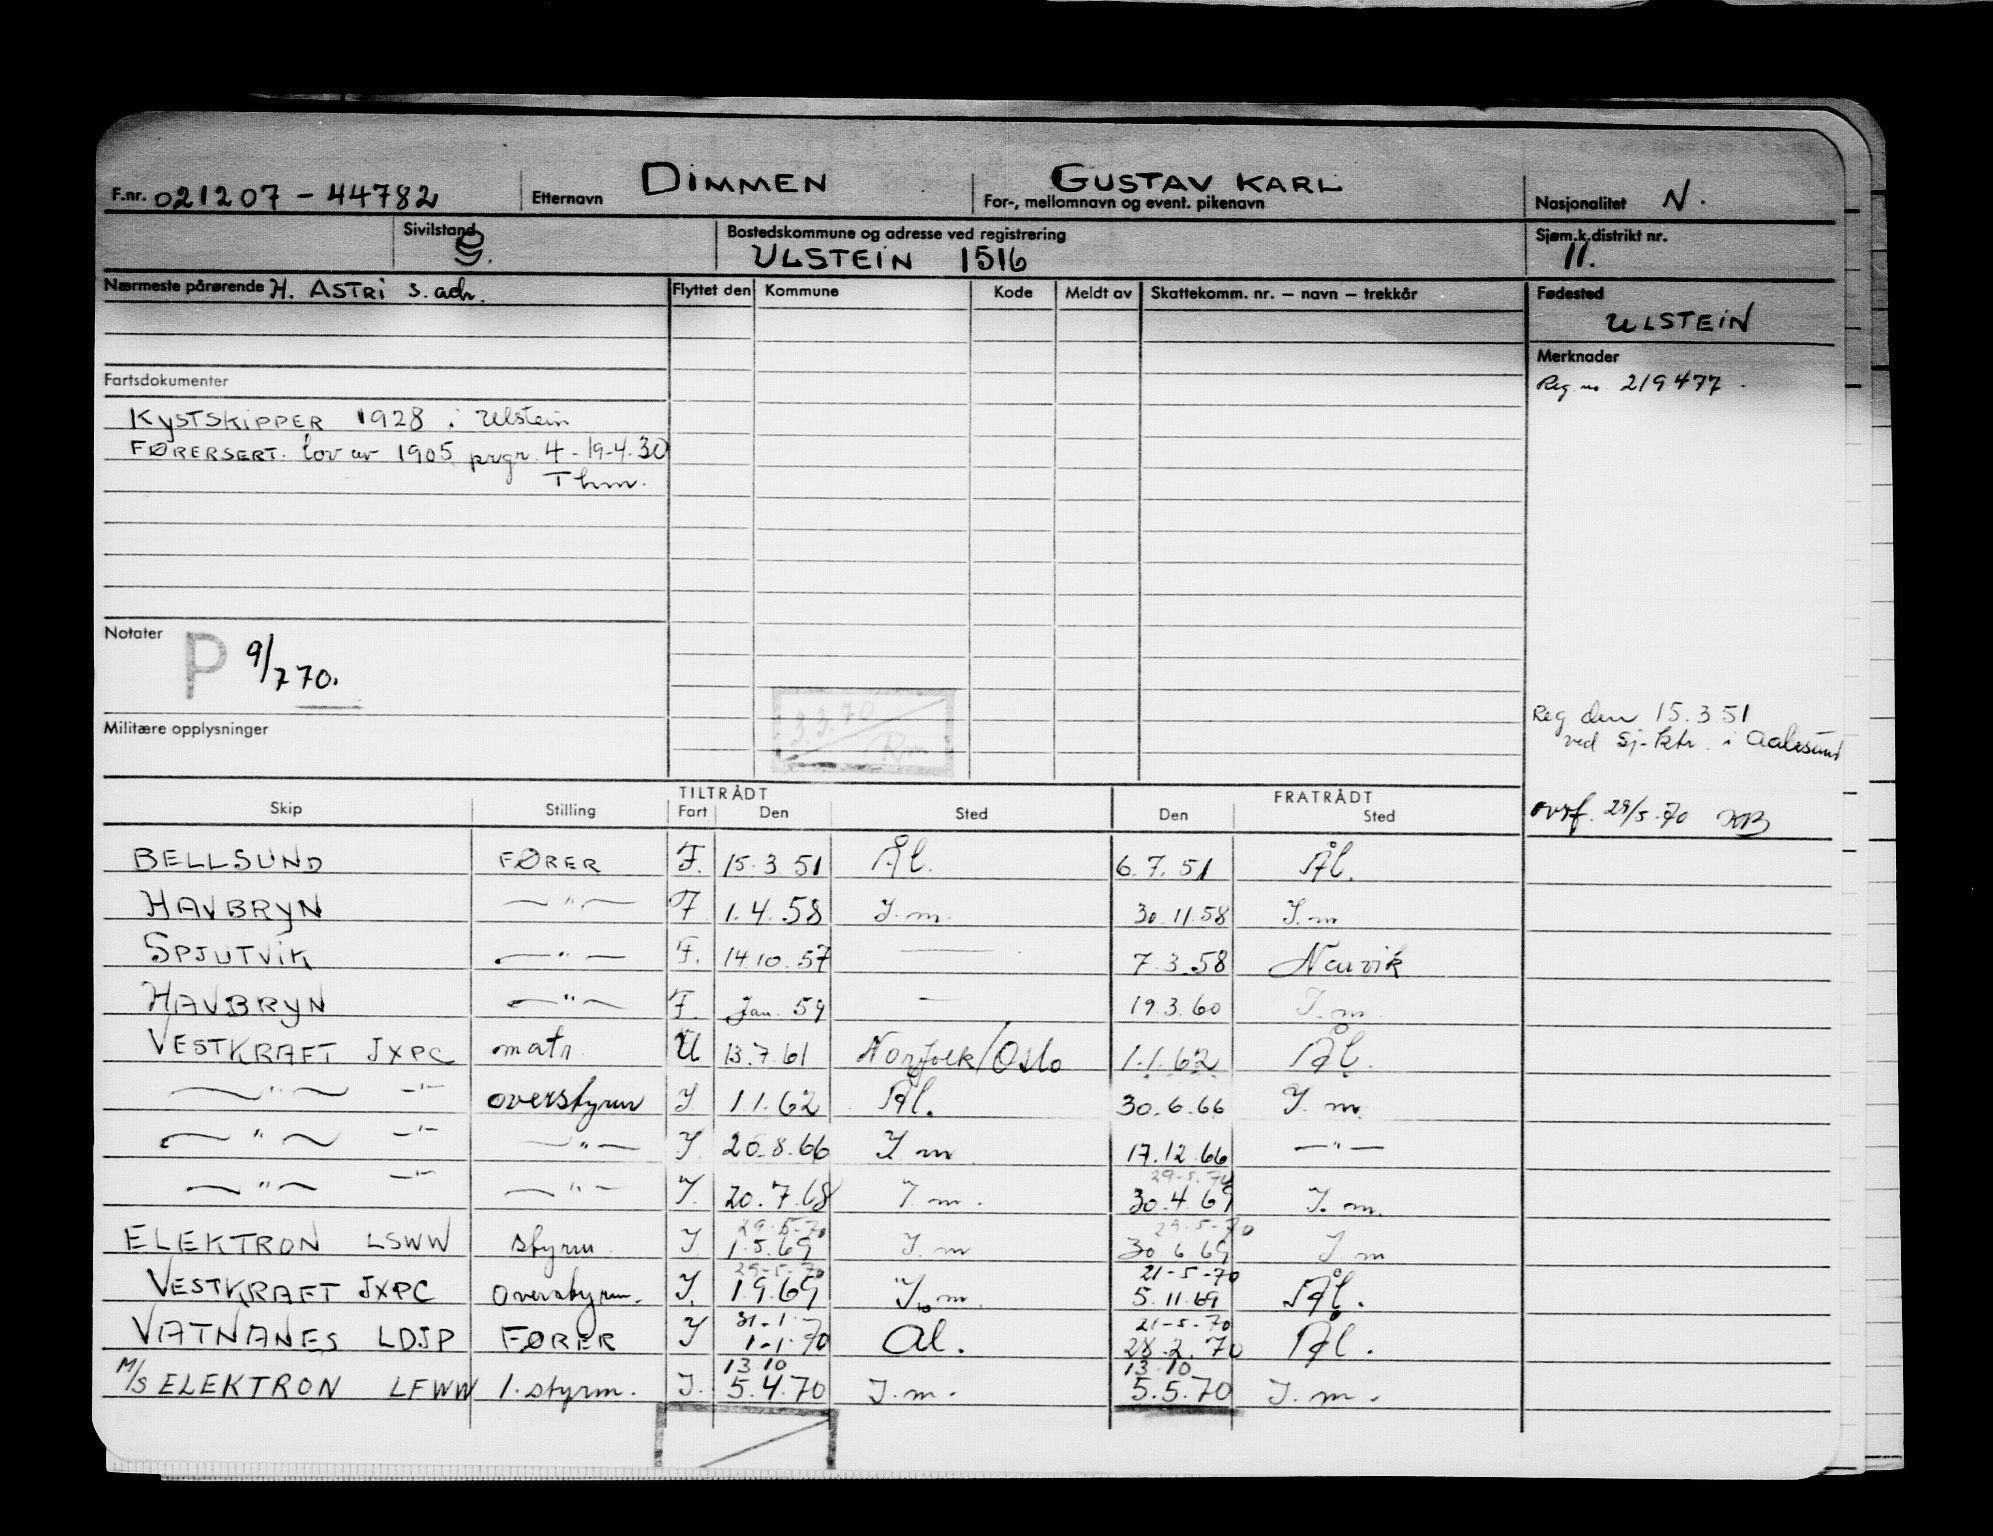 F.nr. 021207 - 44782 Etternavn DIMMEN For-, mellomnavn og event. pikenavn GUSTAV KARL Nasjonalitet N.
Sivilstand g. Bostedskommune og adresse ved registrering ULSTEIN 1516 Sjøm.k.distrikt nr. 11.
Nærmeste pårørende H. ASTRI s. adr. Flyttet den Kommune Kode Meldt av Skattekomm. nr. – navn – trekkår Fødested
ULSTEIN
Merknader
Reg. no. 219477.
Fartsdokumenter
KYSTSKIPPER 1928 i Ulstein
FØRERSERT. lov av 1905 prgr. 4 - 19-4.30
Thm.
Notater P 9/7 70.
3.3.70
Reg den 15.3.51
ved Sj-ktr. i Aalesund
Militære opplysninger
ovrf. 29/5-70
TILTRÅDT FRATRÅDT
Skip Stilling Fart Den Sted Den Sted
BELLSUND FØRER F. 15.3 51 Ål. 6.7.51 Ål.
HAVBRYN — " — F 1.4.58 I.m. 30.11.58 I.m
SPJUTVIK — " — F. 14.10.57 — 7.3.58 Narvik
HAVBRYN — " — F. Jan. 59 — 19.3.60 I.m
VESTKRAFT JXPC matr. U 13.7.61 Norfolk/Oslo 1.1.62 Ål.
— " — — " — overstyrm I 1.1.62 Ål. 30.6.66 I.m.
— " — — " — — " — I 20.8.66 I m 17.12.66 — " —
29-5.70
— " — — " — — " — I. 20.7.68 I.m. 30.4.69 I.m.
29-5-70 29-5-70
ELEKTRON LSWW styrm I 1.5.69 I.m 30.6.69 I.m
29-5-70 21-5-70
VESTKRAFT JXPC Overstyrm. I. 1.9.69 I.m. 5.11.69 Ål.
31-1- 21-5-70
VATNANES LDJP FØRER I 1-1-70 Ål. 28.2.70 Ål.
13 10 13 10
M/S ELEKTRON LFWW 1. styrm. I. 5.4.70 I.m. 5.5.70 I.m.